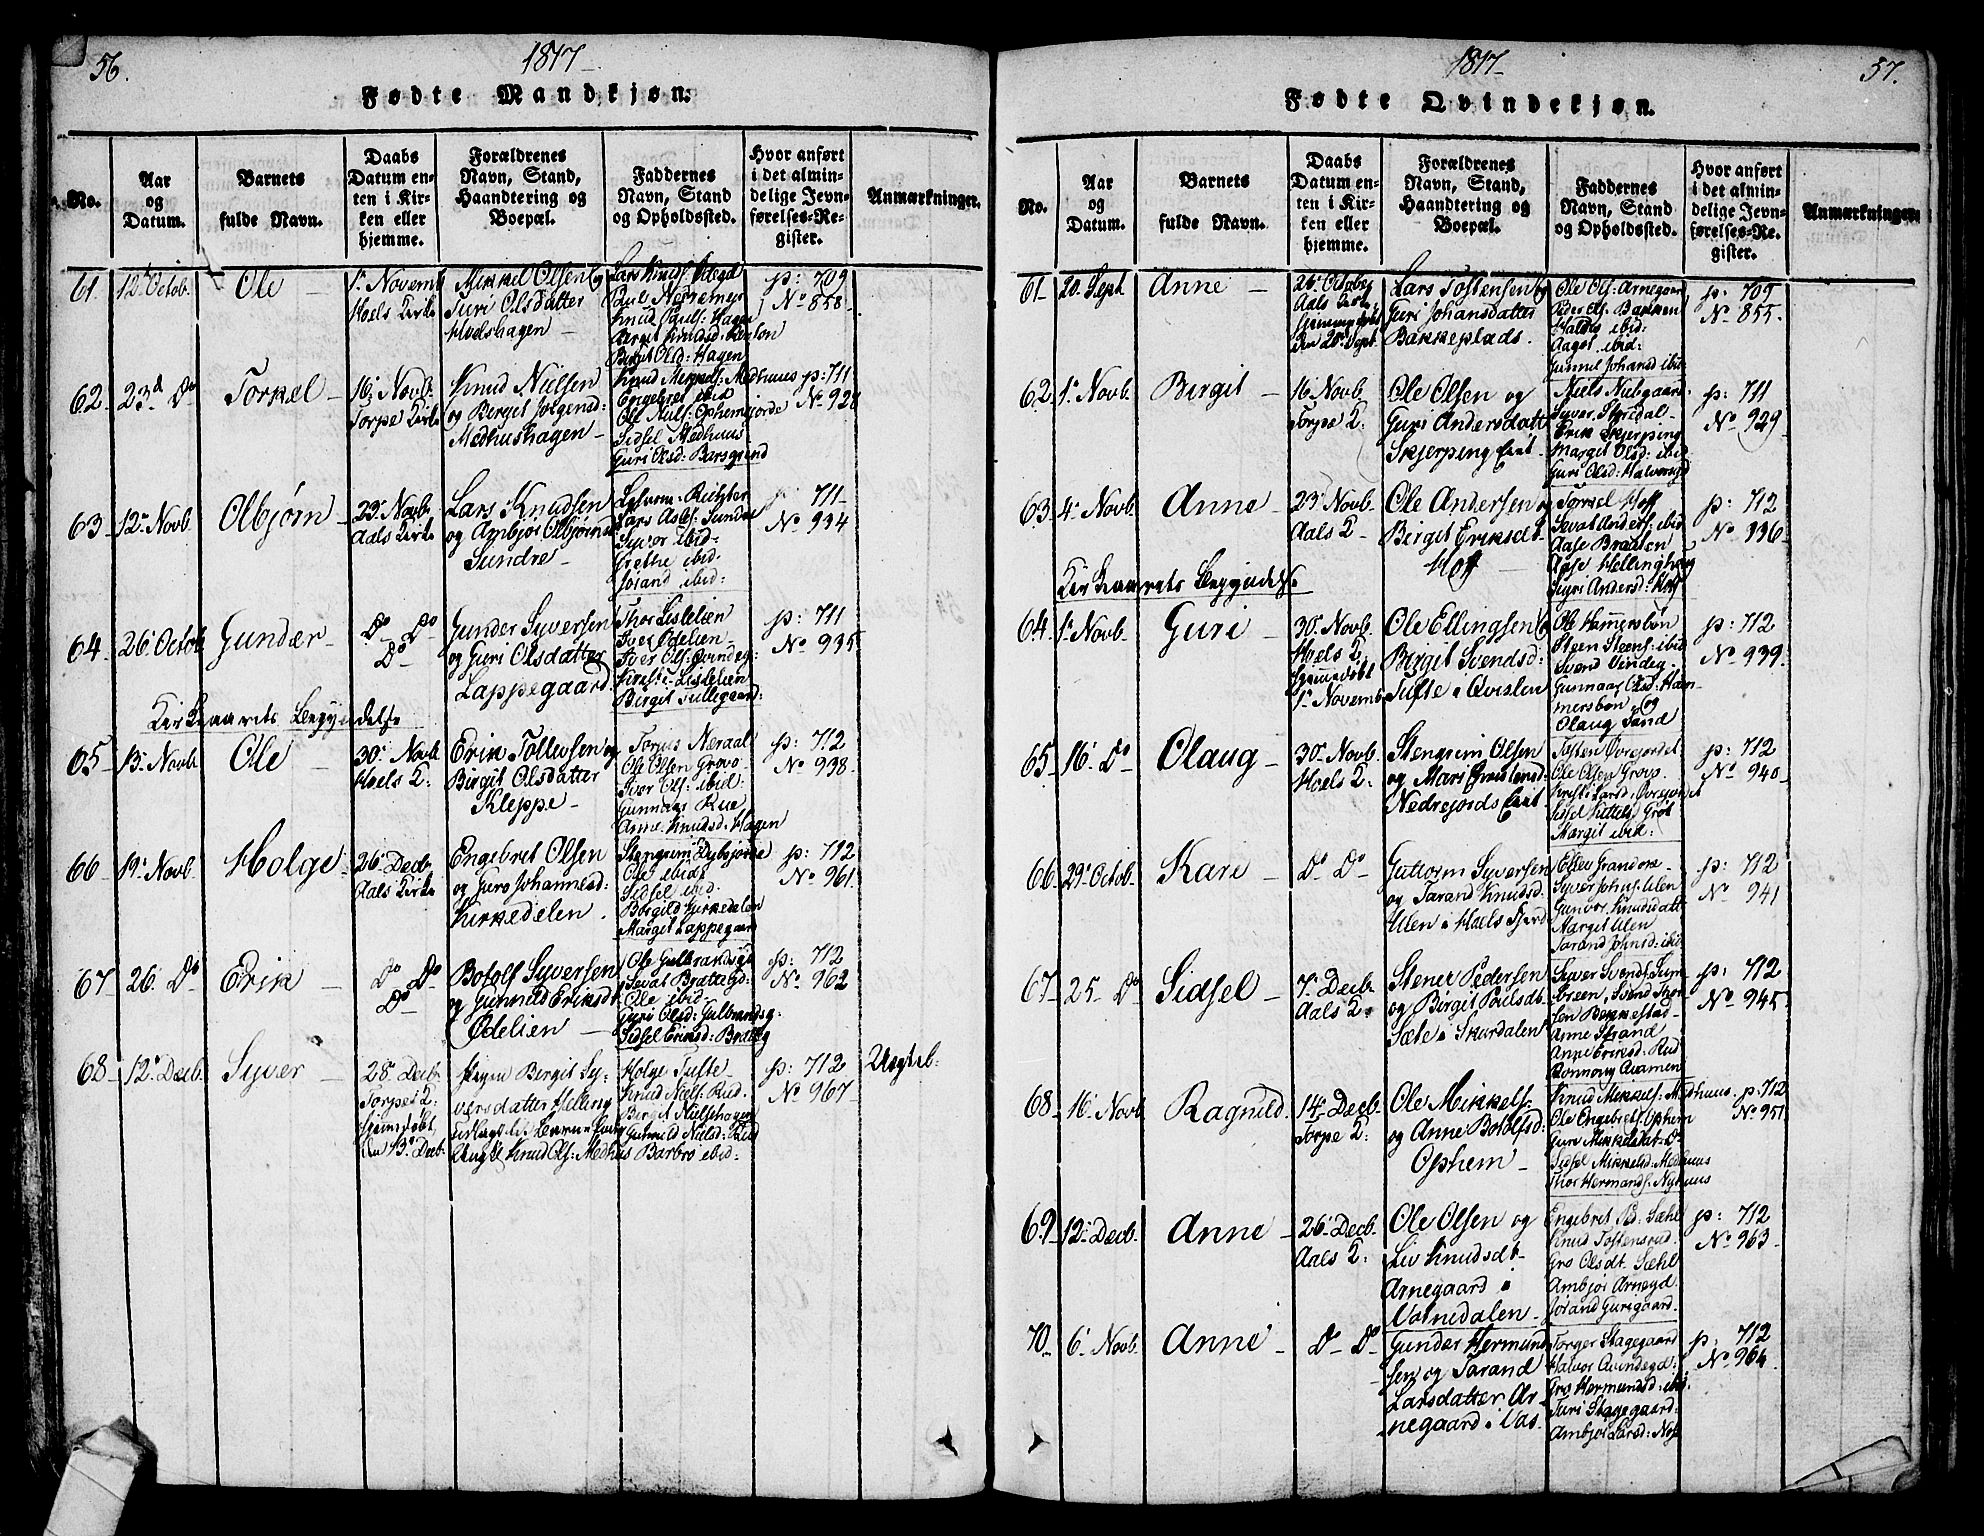 56.
1817
Fødte Mandkjøn:
No.
Aar og Datum.
Barnets fulde Navn.
Daabs Datum enten i Kirken eller hjemme.
Forældrenes Navn, Stand, Haandtering og Boepæl.
Faddernes Navn, Stand og Opholdssted.
Hvor anført i det almindelige Jevnførelses-Register.
Anmærkninger.
61
12. Octob.
Ole
1. Novemb
Hoels Kirke
Mikkel Olsen og
Turi Olsdatter
Hoelshagen
Paul Nedremej
Knud Pauls: Hagen
Birgit Olsd: Hagen
p: 709
No 858
62
23d Do
Torkel
16. Novb.
Torpe Kirke
Knud Nielsen
og Birgit Jorgensd:
Medhushagen
Knud Mikkels: Medhuus
Engebret ibid
Ole Niels: Ophemsjorde
Sidsel Medhuus
Guri Olsd: Barsgrind
p: 711
No 928
63
12. Novb
Olbjørn
23. Novb
Aals Kirke
Lars Knudsen
og Ambjør Olbjørnsd
Sundre
Lars Asles: Sundre
Syver ibid:
Grethe ibid:
Jorand ibid:
p: 711
No 934
64
26. Octob
Gundær
Do Do
Do
Gunder Syversen
og Guri Olsdatter
Lappegaard
Thor Lislelien
Iver Ødelien
Iver Ols: Qvindeg:
Kirsti Lislelien
Birgit Tullegaard:
p: 711
No 935
Kirkeaarets Begyndelse
65
13. Novb
Ole
30. Novb
Hoels K:
Erik Tollevsen og
Birgit Olsdatter
Kleppe
Torjus Næraal
Ole Olsen Grovo
Iver Ols: ibid:
Gunnaar Rue
Anne Knudsd: Hagen
p: 712
No 938
66
19. Novb.
Holge
26. Decb
Aals Kirke
Engebret Olsen
og Guro Johannesd:
Kirkedelen
Ole ibid:
Sidsel ibid.
Borgild Kirkedalen
Margit Lappegaar
p: 712
No 961
67
26. Do
Erik
Do Do
Do
Botolf Syversen
og Gunnild Eriksdt
Ødelien
Ole Gulbrandsg:
Sevat Bratteg:
Ole ibid.
Guri Olsd: Gulbrandsg:
Sidsel Eriksd: Bratteg
p: 712
No 962
68
12. Decb.
Syver
28. Decb
Torpe K:
hjemdøbt,
den 13. Decb.
Pigen Birgit Sy-
versdatter Helling
udlagt til Barnefader
Ungk: Knud Ols: Medhus
Holge Tufte
Knud Niels: Rud.
Birgit Nielsehagen
Gunnild Nielsd: Rud
Barbro ibid:
p: 712
No 967
Uægteb:
1817
57.
Fødte Qvindekjøn.
No.
Aar og Datum.
Barnets fulde Navn.
Daabs Datum enten i Kirken eller hjemme.
Forældrenes Navn, Stand, Haandtering og Boepæl.
Faddernes Navn, Stand og Opholdssted.
Hvor anført i det almindelige Jevnførelses-Register.
Anmærkninger.
61
20. Sept
Anne
26. Octobr
Aals Kirke,
hjemmedøbt
den 20. Sept
Lars Tostensen og
Guri Johansdatter
Bakkeplads.
Ole Ols: Arnegaar
Peder Els: Bakken
Haldis ibid:
Aagot ibid:
Gunnil Johansd ibid
p: 709
No 855
62
1. Novb.
Birgit
16 Novb
Torpe K:
Ole Olsen og
Guri Andersdatt
Skjerping Eiet
Niels Nubgaard
Syver Storedal
Erik Skjerping
Margit Olsd: ibid
Guri Olsd: Halvorsgd
p: 711
No 929
63
4. Novb
Anne
23. Novb
Aals K
Ole Andersen og
Birgit Eriksdt
Hoff
Torkel Hoff
Sevat Anders: ibid
Aase Braaten
Aase Hellinghaug
Sigri Andersd: Hoff
p: 712
No 936
Kirkeaarets Begyndelse
64
1. Novb.
Guri
30. Novb
Hoels K
hjemedøbt
1. Novemb
Ole Ellingsen og
Birgit Svendsd:
Tufte i Qvislen
Ole Hammersbøn
Steen Steens: ibid
Svend Vindeg:
Gunnaar Olsd: Ham-
mersbøn og
Olaug Sand
p: 712
No 939
65
16. Do
Olaug
30. Novb
Hoels K:
Stengrim Olsen
og Mari
Nedrejords Eiet
Tosten Øvrejordet
Ole Olsen Group
Kirsti Larsd: Øvrejordet
Sidsel Kittelsd: Grot
Margit ibid:
p: 712
No 940
66
29. Octob.
Kari
Do Do
Guttorm Syversen
og Tarand Knudsd:
Ulen i Hoels Fjerd
Ellev Grandore
Syver Johns: Ulen
Gunvor Knudsdatt
Margit Ulen
Tarand Johnsd: ibid
p: 712
No 941
67
25. Do
Sidsel
7. Decb
Aals K:
Stener Pedersen
og Birgit Poulsdt
Sæte i Skurdalen
Syver Svends: Sum-
breen, Svend Thor
sen Bekkestad
Anne Strand
Anne Eriksd: Rud
Ronnoug Aaamen
p: 712
No 945
68
16. Novb
Ragnild
14. Decb
Torpe K:
Ole Mikkels:
og Anne Botolfsd:
Ophem
Knud Mikkels: Medhuus.
Ole Engebrets: Ophem
Guri Mikkelsdt: Do
Sidsel Mikkelsd: Medhuus
Thor Hermands: Nyhuus
p. 712
No 951
69
12. Decb.
Anne
26. Decb.
Aals K:
Ole Olsen og
Liv Knudsdt
Arnegaard i
Vatnedalen
Engebret Ped: Sæhl
Knud Tostensrud
Gro Olsdt. Sæhl
Ambjør Arnegd
Jorand Guregaard.
p: 712
No 963
70
6. Novb.
Anne
Do Do
Gunder Hermund
sen og Tarand
Larsdatter Ar-
negaard i Vas.
Torger Stagegaard
Halvor Qvindegd:
Gro Hermundsd: ibid.
Turi Stagegaard:
Ambjør Larsd: Noss
p: 712
No 964